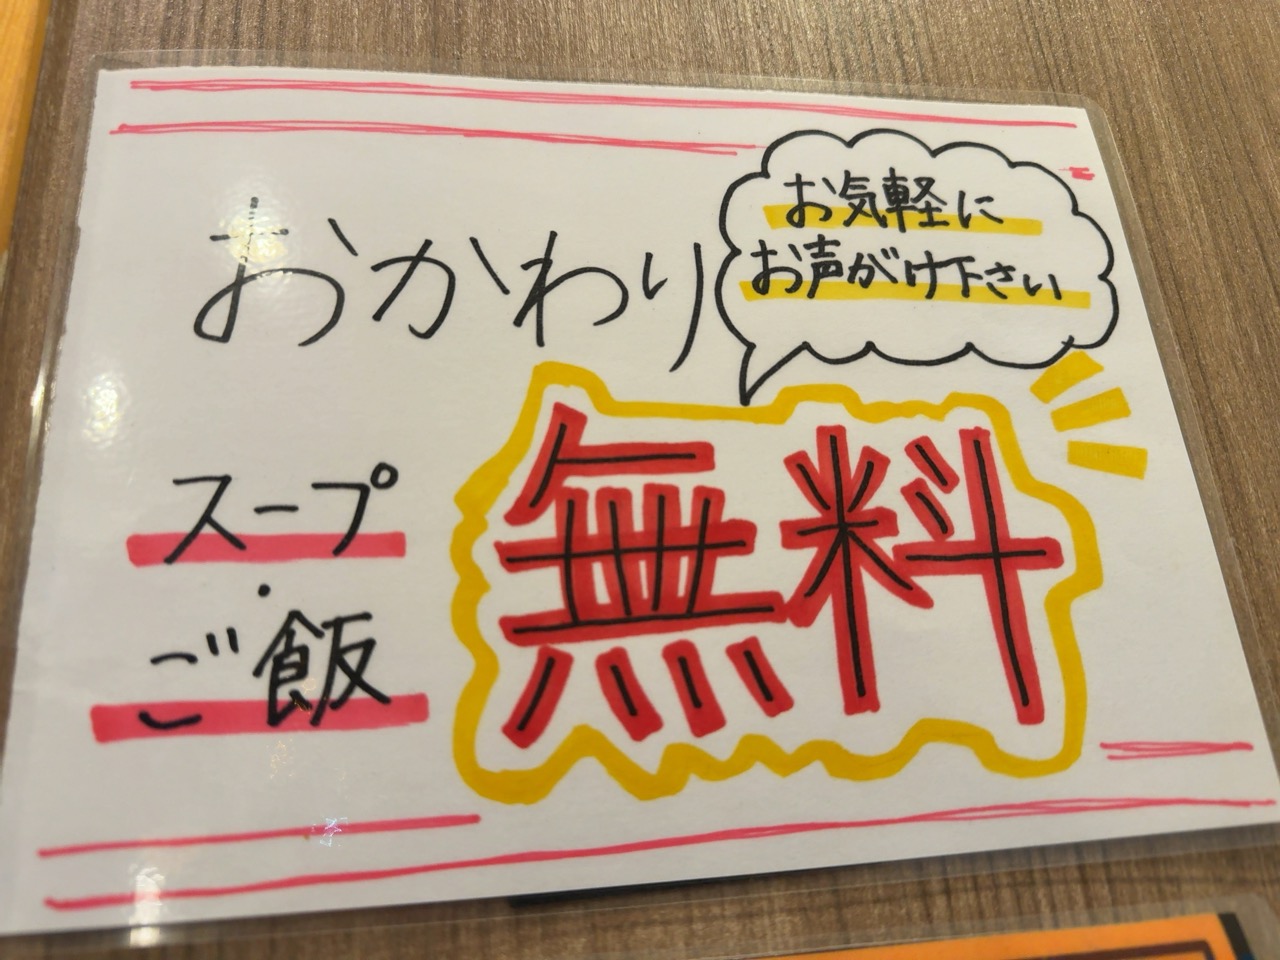 おかわり
お気軽に
お声がけ下さい
スープ
・
ご飯
無料